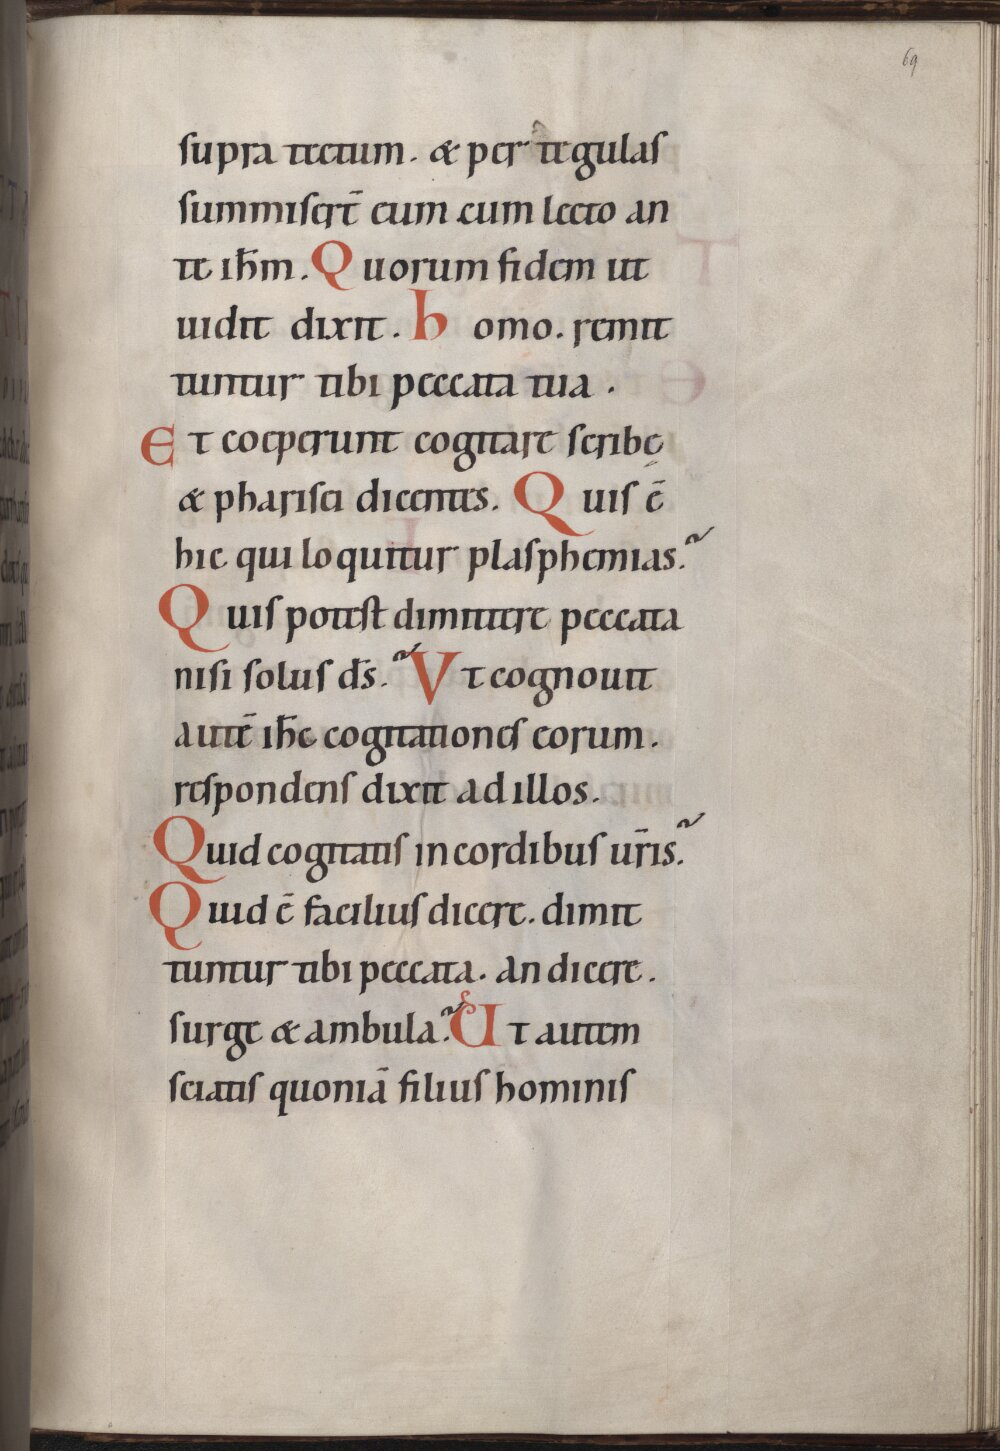 69
supra tectum. & per tegulas
summiserт̄ eum cum lecto an
te ih̄m. Quorum fidem ut
uidit dixit. homo. remit
tuntur tibi peccata tua.
Et coeperunt cogitare scribę
& pharisei dicentes. Quis ē
hic qui loquitur plasphemias.~
Quis potest dimittere peccata
nisi solus d̄s.~ Vt cognouit
autē ih̄c cogitationes eorum.
respondens dixit ad illos.
Quid cogitatis in cordibus ur̄is.~
Quid ē facilius dicere. dimit
tuntur tibi peccata. an dicere.
surge & ambula.~ Ut autem
sciatis quoniā filius hominis